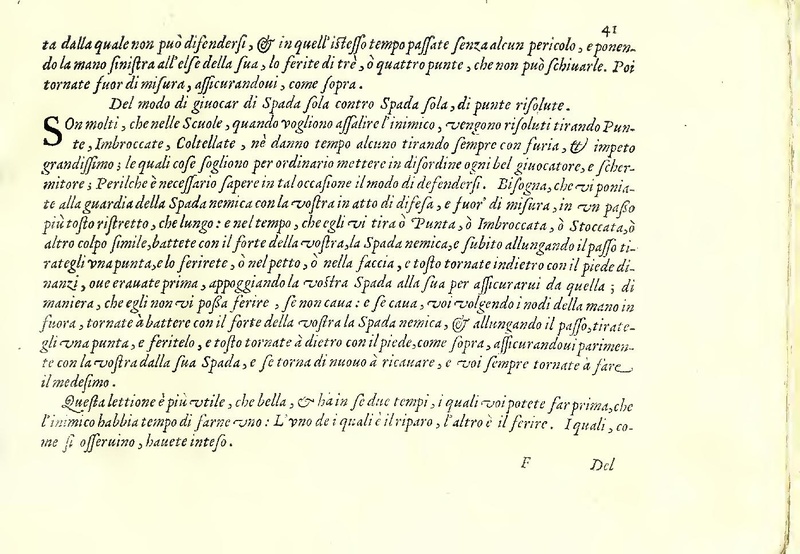 41
ta dalla quale non può difenderſi, & in quell'iſteſſo tempo paſſate ſenza alcun pericolo, e ponen-
do la mano ſiniſtra all'elſe della ſua, lo ferite di trè, ò quattro punte, che non può ſchiuarle. Poi
tornate fuor di miſura, aſſicurandoui, come ſopra.
Del modo di giuocar di Spada ſola contro Spada ſola, di punte riſolute.
SOn molti, che nelle Scuole, quando vogliono aſſalire l'inimico, vengono riſoluti tirando Pun-
te, Imbroccate, Coltellate, nè danno tempo alcuno tirando ſempre con furia, & impeto
grandiſſimo; le quali coſe ſogliono per ordinario mettere in diſordine ogni bel giuocatore, e ſcher-
mitore; Perilche è neceſſario ſapere in tal occaſione il modo di defenderſi. Biſogna, che vi ponia-
te alla guardia della Spada nemica con la voſtra in atto di difeſa, e fuor' di miſura, in vn paſſo
più toſto riſtretto, che lungo: e nel tempo, che egli vi tira ò Punta, ò Imbroccata, ò Stoccata, ò
altro colpo ſimile, battete con il forte della voſtra, la Spada nemica, e ſubito allungando il paſſo ti-
rategli vna punta, e lo ferirete, ò nel petto, ò nella faccia, e toſto tornate indietro con il piede di-
nanzi, oue erauate prima, appoggiando la voſtra Spada alla ſua per aſſicurarui da quella; di
maniera, che egli non vi poſſa ferire, ſe non caua: e ſe caua, voi volgendo i nodi della mano in
fuora, tornate à battere con il forte della voſtra la Spada nemica, & allungando il paſſo, tirate-
gli vna punta, e feritelo, e toſto tornate à dietro con il piede, come ſopra, aſſicurandoui parimen-
te con la voſtra dalla ſua Spada, e ſe torna di nuouo à ricauare, e voi ſempre tornate à fare
il medeſimo.
Queſta lettione è più vtile, che bella, & hà in ſe due tempi, i quali voi potete far prima, che
l'inimico habbia tempo di farne vno: L'vno de i quali è il riparo, l'altro è il ferire. I quali, co-
me ſi oſſeruino, hauete inteſo.
F Del